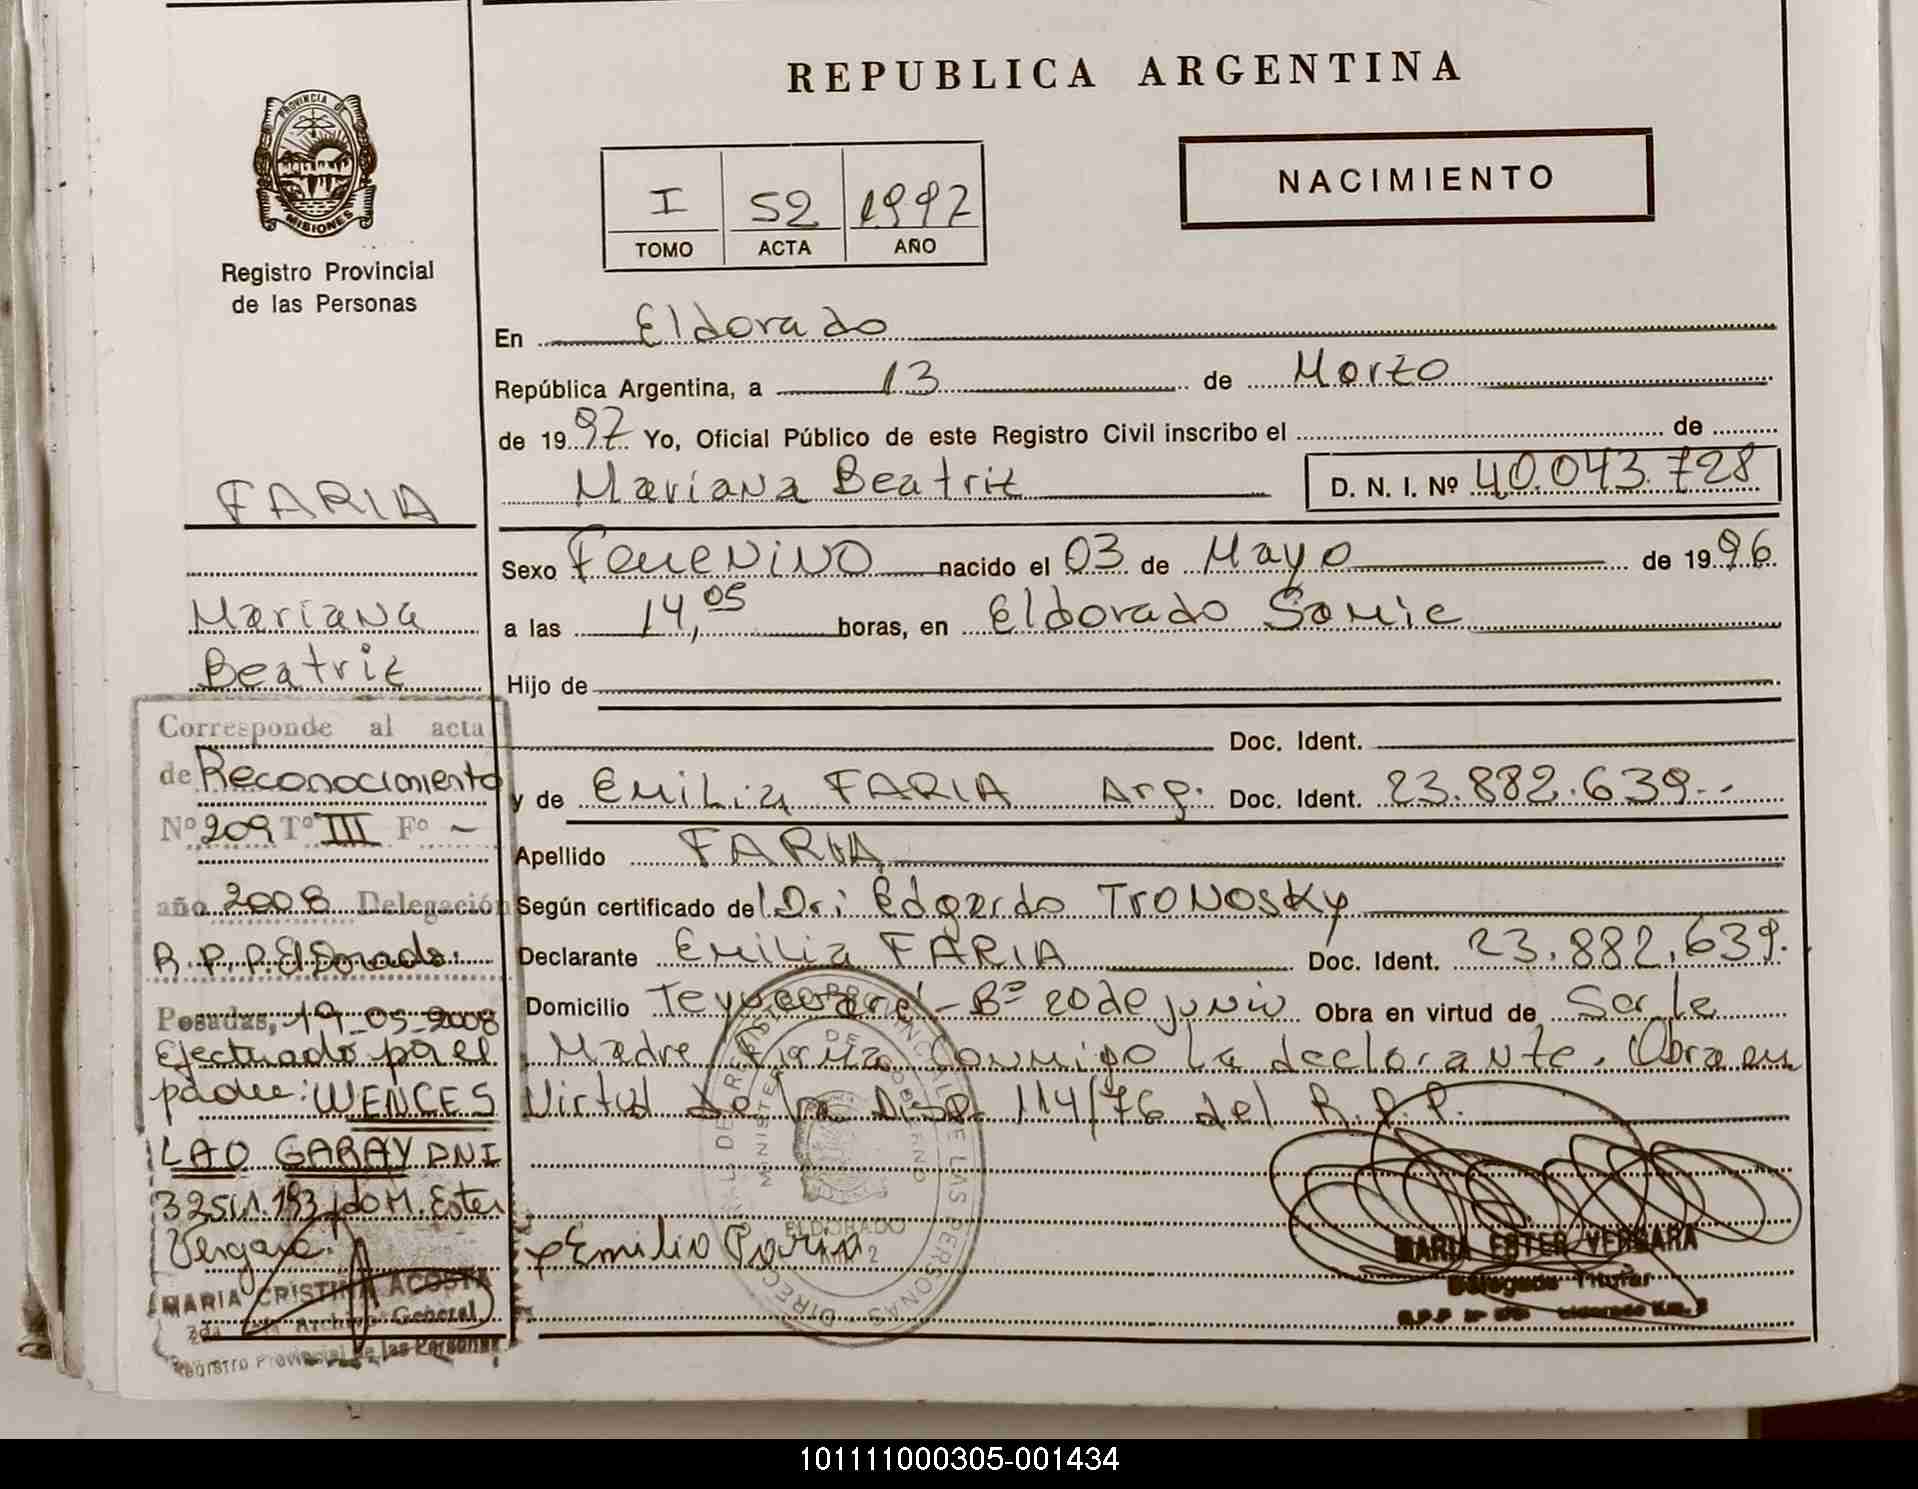 REPUBLICA ARGENTINA
PROVINCIA DE
MISIONES
Registro Provincial
de las Personas
NACIMIENTO
I 52 1997
TOMO ACTA AÑO
En Eldorado
República Argentina, a 13 de Marzo
de 1997 Yo, Oficial Público de este Registro Civil inscribo el de
Mariana Beatriz D. N. I. Nº 40.043.728
Sexo Femenino nacido el 03 de Mayo de 1996
a las 14,05 horas, en Eldorado Samic
Hijo de
Doc. Ident.
y de Emilia FARIA Arg. Doc. Ident. 23.882.639.-
Apellido FARIA
Según certificado del Dr: Edgardo Tronosky
Declarante Emilia FARIA Doc. Ident. 23.882.639.
Domicilio B° 20 de junio Obra en virtud de Ser le
Madre Firma Conmigo la declarante. Obra en
Virtud de la Disp. 114/76 del R.P.P.
FARIA
Mariana
Beatriz
Corresponde al acta
de Reconocimiento
Nº 209 Tº III Fº -
año 2008 Delegación
R.P.P. Eldorado.
Posadas, 19-05-2008
Efectuado por el
padre: WENCES
LAO GARAY DNI
M. Ester
Vergara.
MARIA CRISTINA ACOSTA
Archivo General
Registro Provincial de las Personas
Emilia Faria
DIRECC REGISTRO PROVINCIAL DE LAS PERSONAS
MINISTERIO DE GOBIERNO
ELDORADO
KM. 2
MARIA ESTER VERGARA
Delegada Titular
101111000305-001434